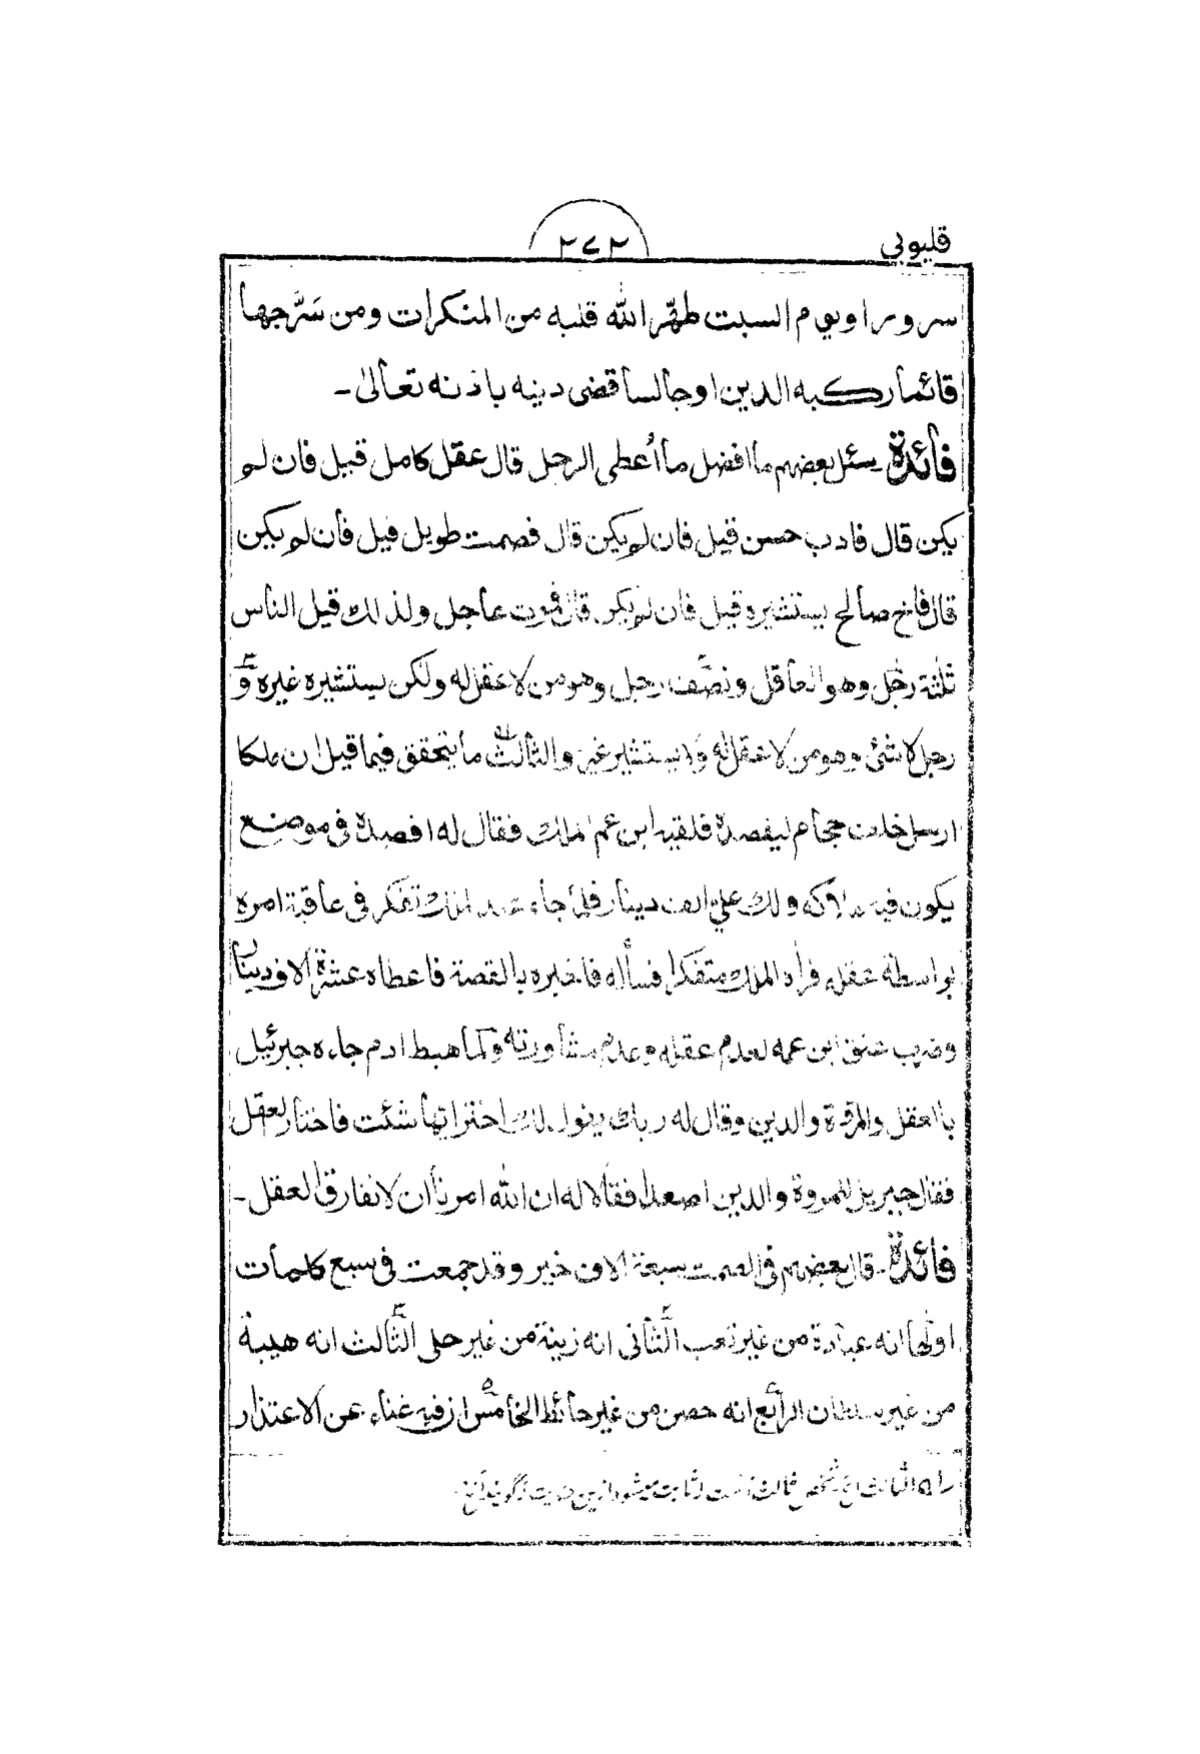 قليوبي
٢٧٢
سرورا ويوم السبت طهّر الله قلبه من المنكرات ومن سَرَّجها
قائما ركبه الدين او جالسا قضى دينه باذنه تعالىٰ۔
فائدة سئل بعضهم ما افضل ما اُعطى الرجل قال عقل كامل قيل فان لم
يكن قال فادب حسن قيل فان لم يكن قال فصمت طويل قيل فان لم يكن
قال فاخ صالح يستشيره قيل فان لم يكن قال فموت عاجل ولذلك قيل الناس
ثلثة رجل وهو العاقل ونصف رجل وهو من لا عقل له ولكن يستشير غيره و
رجل لا شئ وهو من لا عقل له ولا يستشير غيره والثالث ما يتحقق فيما قيل ان ملكا
ارسل خلف حجام ليفصده فلقيه ابن عم الملك فقال له افصده فى موضع
يكون فيه هلاكه ولك علي الف دينار فلما جاء عند الملك تفكر فى عاقبة امره
بواسطة عقله فراه الملك متفكرا فسأله فاخبره بالقصة فاعطاه عشرة الاف دينار
وضرب عنق ابن عمه لعدم عقله وعدم مشاورته ولما هبط ادم جاءه جبرئيل
بالعقل والمروة والدين وقال له ربك يقول لك اختر ايها شئت فاختار العقل
فقال جبريل للمروة والدين اصعدا فقالا له ان الله امرنا ان لا نفارق العقل۔
فائدة۔ قال بعضهم فى الصمت سبعة الاف خير وقد جمعت فى سبع كلمات
اولها انه عبادة من غير تعب الثانى انه زينة من غير حلى الثالث انه هيبة
من غير سلطان الرابع انه حصن من غير حائط الخامس ان فيه غناء عن الاعتذار
الثالث اى شخص ثالث